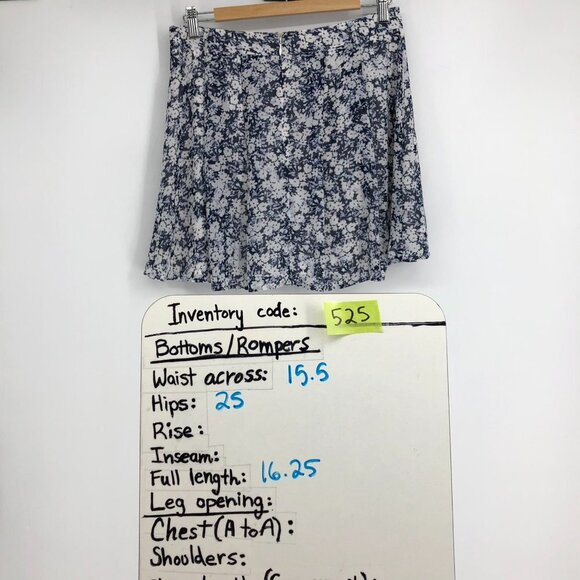 Inventory code: 525
Bottoms/Rompers
Waist across: 15.5
Hips: 25
Rise:
Inseam:
Full length: 16.25
Leg opening:
Chest (A to A):
Shoulders: